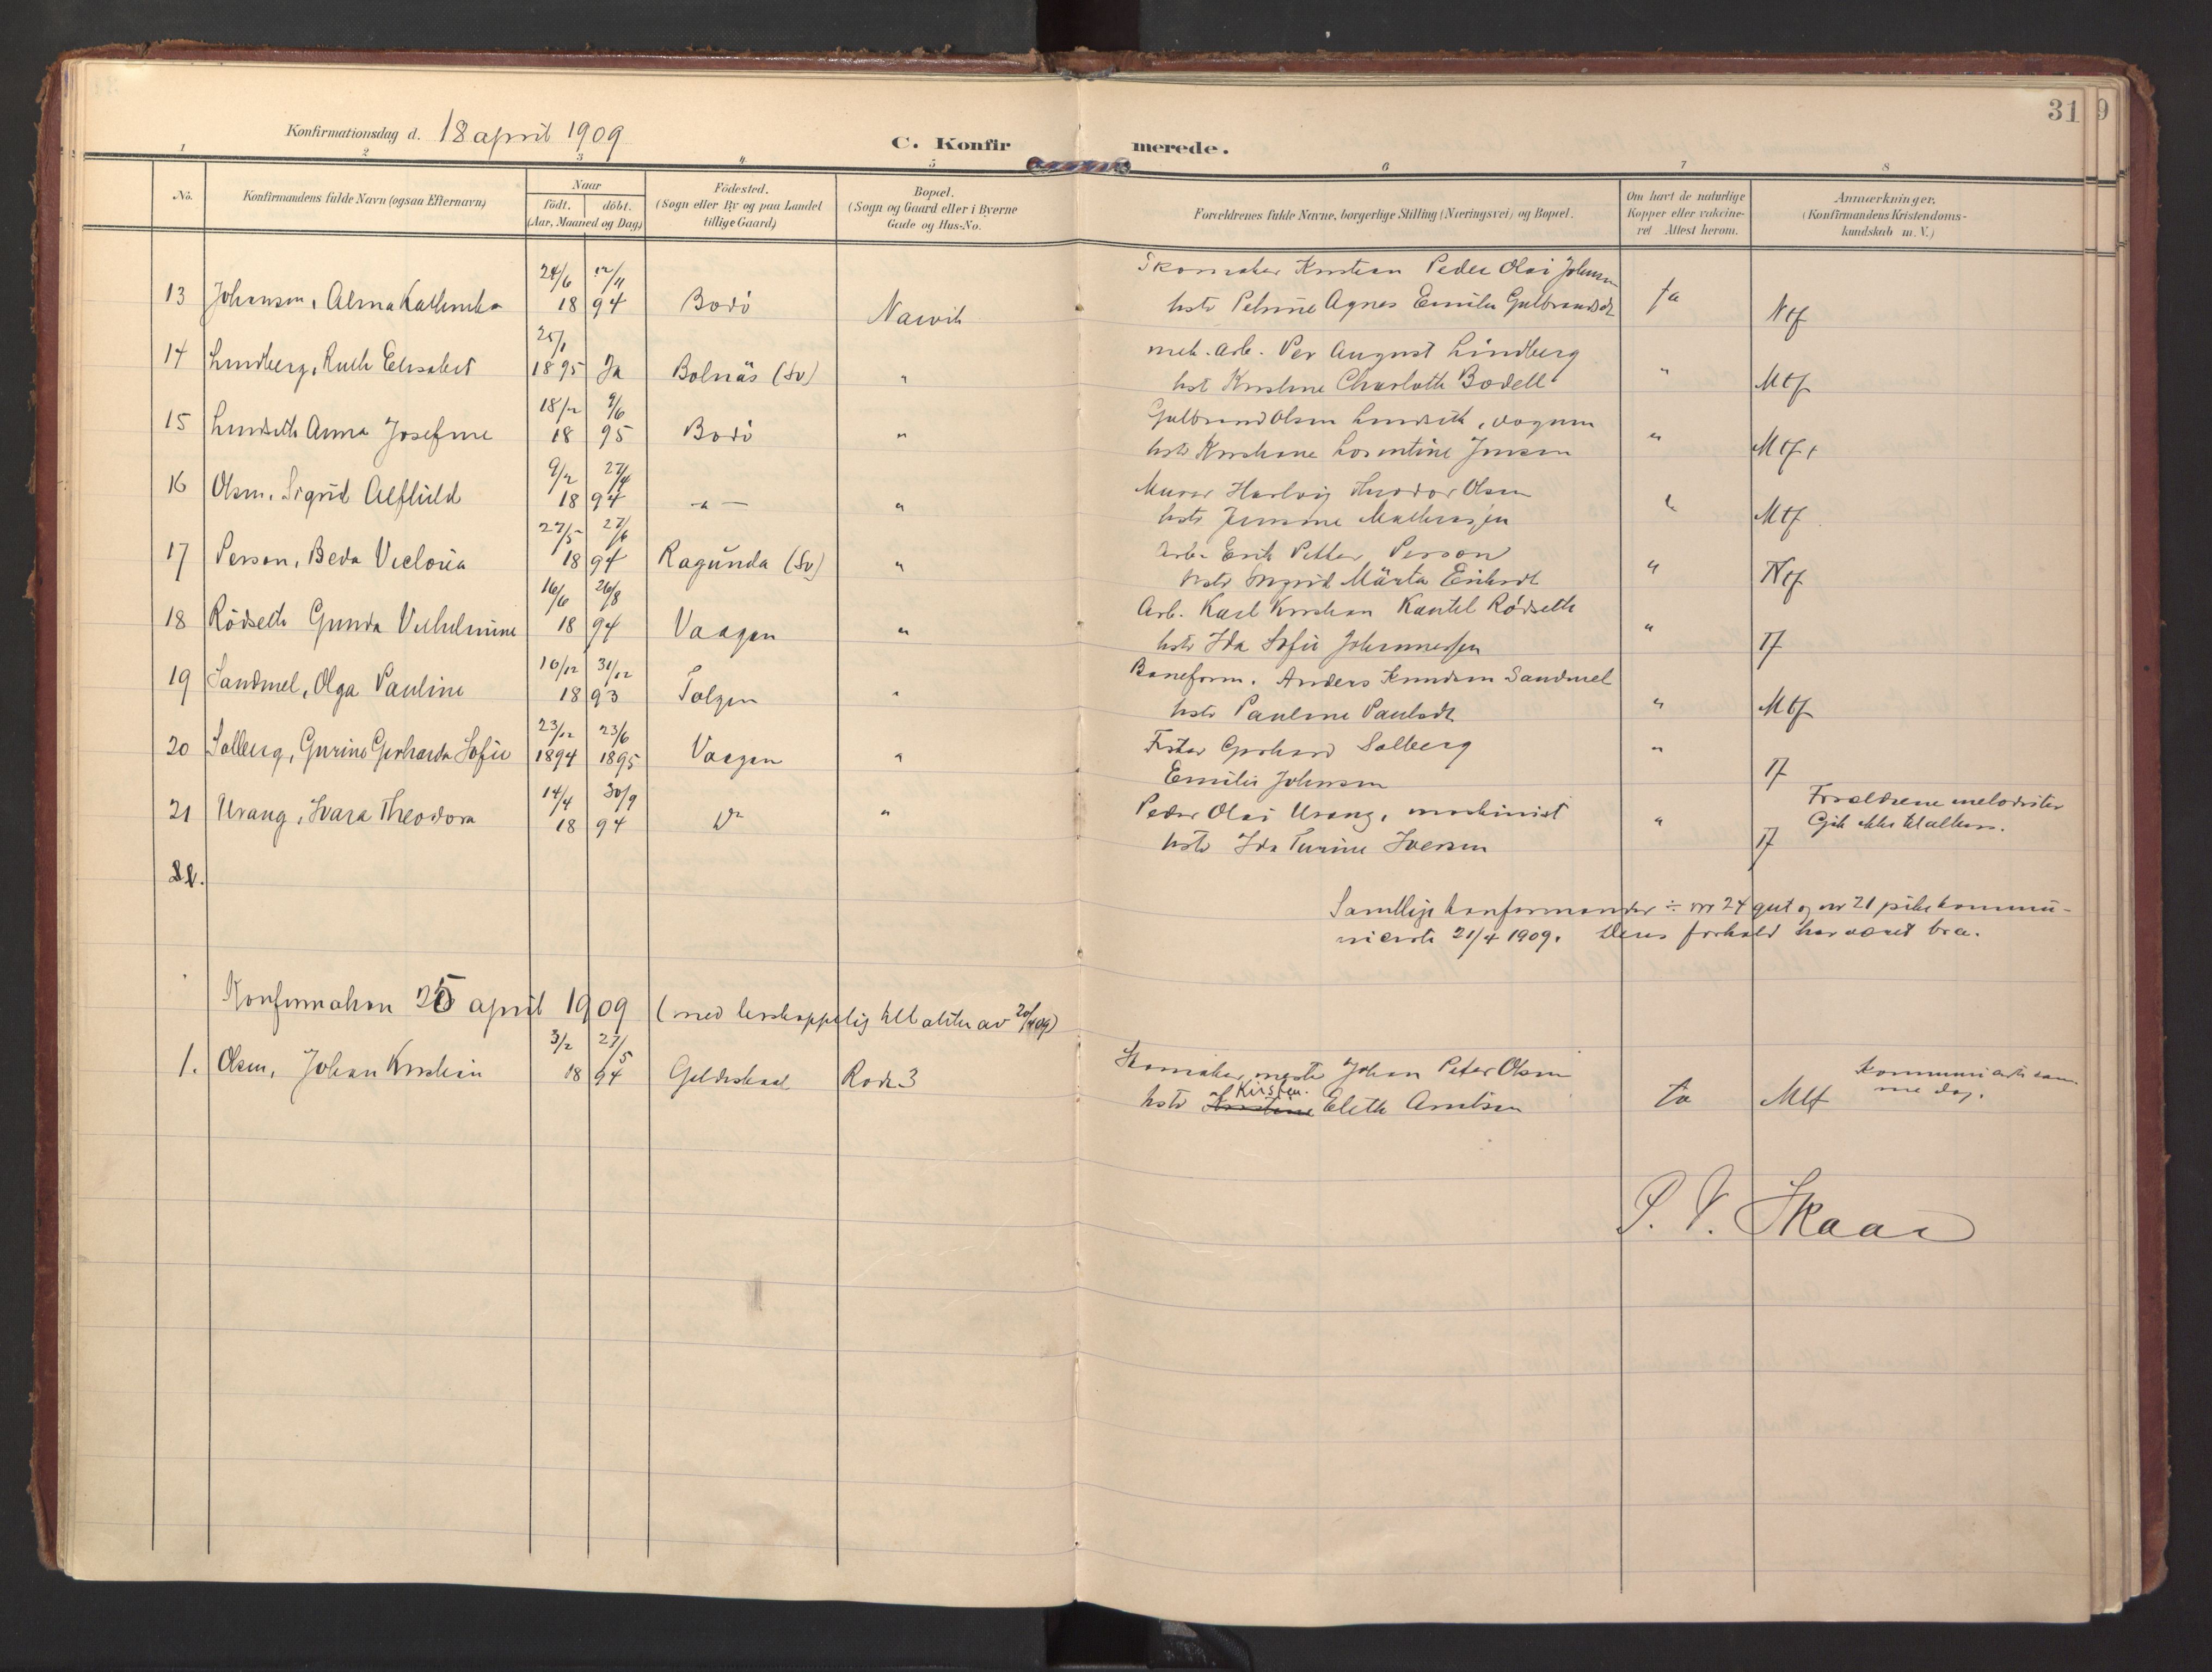 31
9
Konfirmationsdag d. 18 april 1909
C. Konfirmerede.
1 2 3 4 5 6 7 8
No. Konfirmandens fulde Navn (ogsaa Efternavn) Naar født. døbt. (Aar, Maaned og Dag) Fødested. (Sogn eller By og paa Landet tillige Gaard) Bopæl. (Sogn og Gaard eller i Byerne Gade og Hus-No. Forældrenes fulde Navne, borgerlige Stilling (Næringsvei) og Bopæl. Om havt de naturlige Kopper eller vakcineret Attest herom. Anmærkninger, (Konfirmandens Kristendomskundskab m.V.)
24/6 12/11 Skomaker Kristian Peder Olai Johnsen
13 Johansen, Alma 18 94 Bodø Narvik hstr Petrine Agnes Emilie Gulbrandsdt ja Ntf
25/1 mek. arb. Per August Lindberg
14 Lindberg, Ruth Elisabet 1895 Ja Bolnäs (Sv) " hst Kristine Charlotte Bodell " Mtf
18/12 9/6 Gulbrand Olsen Lundseth, vognm
15 Lundseth Anna Josefine 18 95 Bodø " hstr Kristiane Lorentine Jensen " Mtf
9/2 27/4 Murer Hartvig Theodor Olsen
16 Olsen, Sigrid Alfhild 18 94 -"- " hstr Jensine Mathiassen " Mtf
27/5 27/6 Arb. Erik Petter Person
17 Person, Beda Victoria 18 94 Ragunda (Sv) " hstr Ingrid Märta Eriksdt " Ntf
16/6 26/8 Arb. Karl Kristian Kantel Rødseth
18 Rødseth Gunda Vilhelmine 18 94 Vaagan " hstr Ida Sofie Johannessen " Tf
16/12 31/12 Baneform. Anders Knudsen Sandmel
19 Sandmel, Olga Pauline 18 93 Tolgen " hstr Pauline Paulsdt " Mtf
23/12 23/6 Gerhard Solberg
20 Solberg, Gurine Gerharda Sofie 1894 1895 Vaagan " Emilie Johnsen " Tf
14/4 30/9 Peder Olai Urang, maskinist Forældrene metodister
21 Urang, Ivara Theodora 18 94 " hstr Ida Turine Iversen " Tf Gik ikke til alters.
22.
Samtlige konfirmander ÷ nr 24 gut og nr 21 pike kommunicerte 21/4 1909. Deres forhold har været bra.
Konfirmation 25 april 1909 (med biskoppelig tillatelse av 20/4 09)
3/2 27/5 Skomakermester Johan Peter Olsen Kommunicerte samme dag.
1. Olsen, Johan Kristian 18 94 Gildeskaal Rode 3 hstr Kirsten Eleth Arntsen ja Mtf
P. V. Skaar